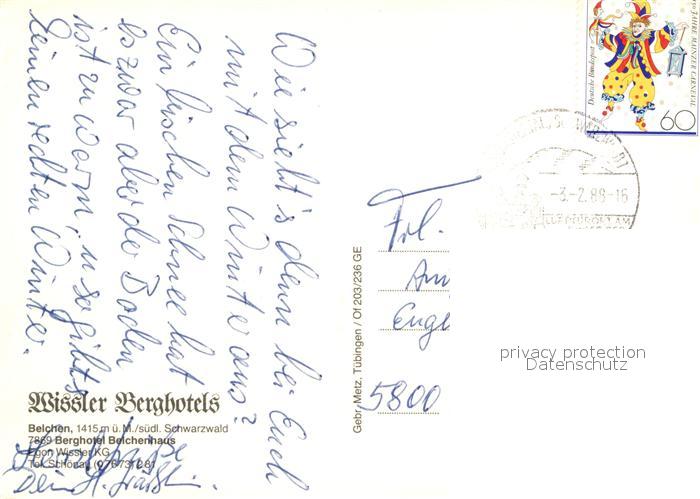 Wie sieht's denn bei Euch
mit dem Winter aus?
Ein bischen Schnee hat
es zwar aber der Boden
ist zu warm, u. so gibts
keinen rechten Winter.
Wissler Berghotels
Belchen, 1415 m ü. M./südl. Schwarzwald
7869 Berghotel Belchenhaus
Egon Wissler KG
Tel. Schönau (07673) 281
Gebr. Metz, Tübingen / Of 203/236 GE
Frl.
Am
Enge
5800
privacy protection
Datenschutz
Deutsche Bundespost
150 JAHRE MAINZER KARNEVAL
60
-3.-2.88-16